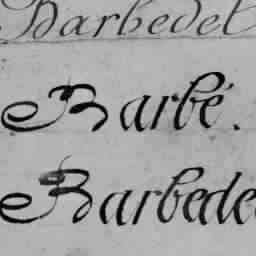 Barbedet
Barbé.
Barbede